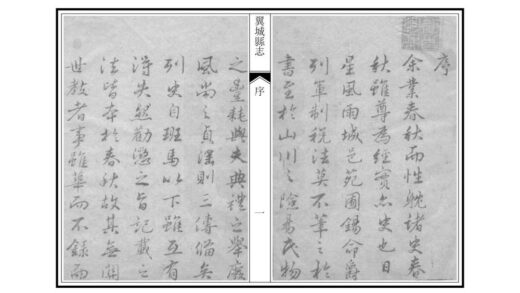 序
余業春秋而性躭諸史春
秋雖尊為經實亦史也日
星風雨城邑苑圃錫命爵
列軍制稅法莫不筆之於
書至於山川之險易民物
翼城縣志
序
一
之豐耗與夫典禮之舉廢
風尚之貞淫則三傳備矣
列史自班馬以下雖互有
得失然勸懲之旨記載之
法皆本於春秋故其無關
世教者事雖華而不錄而